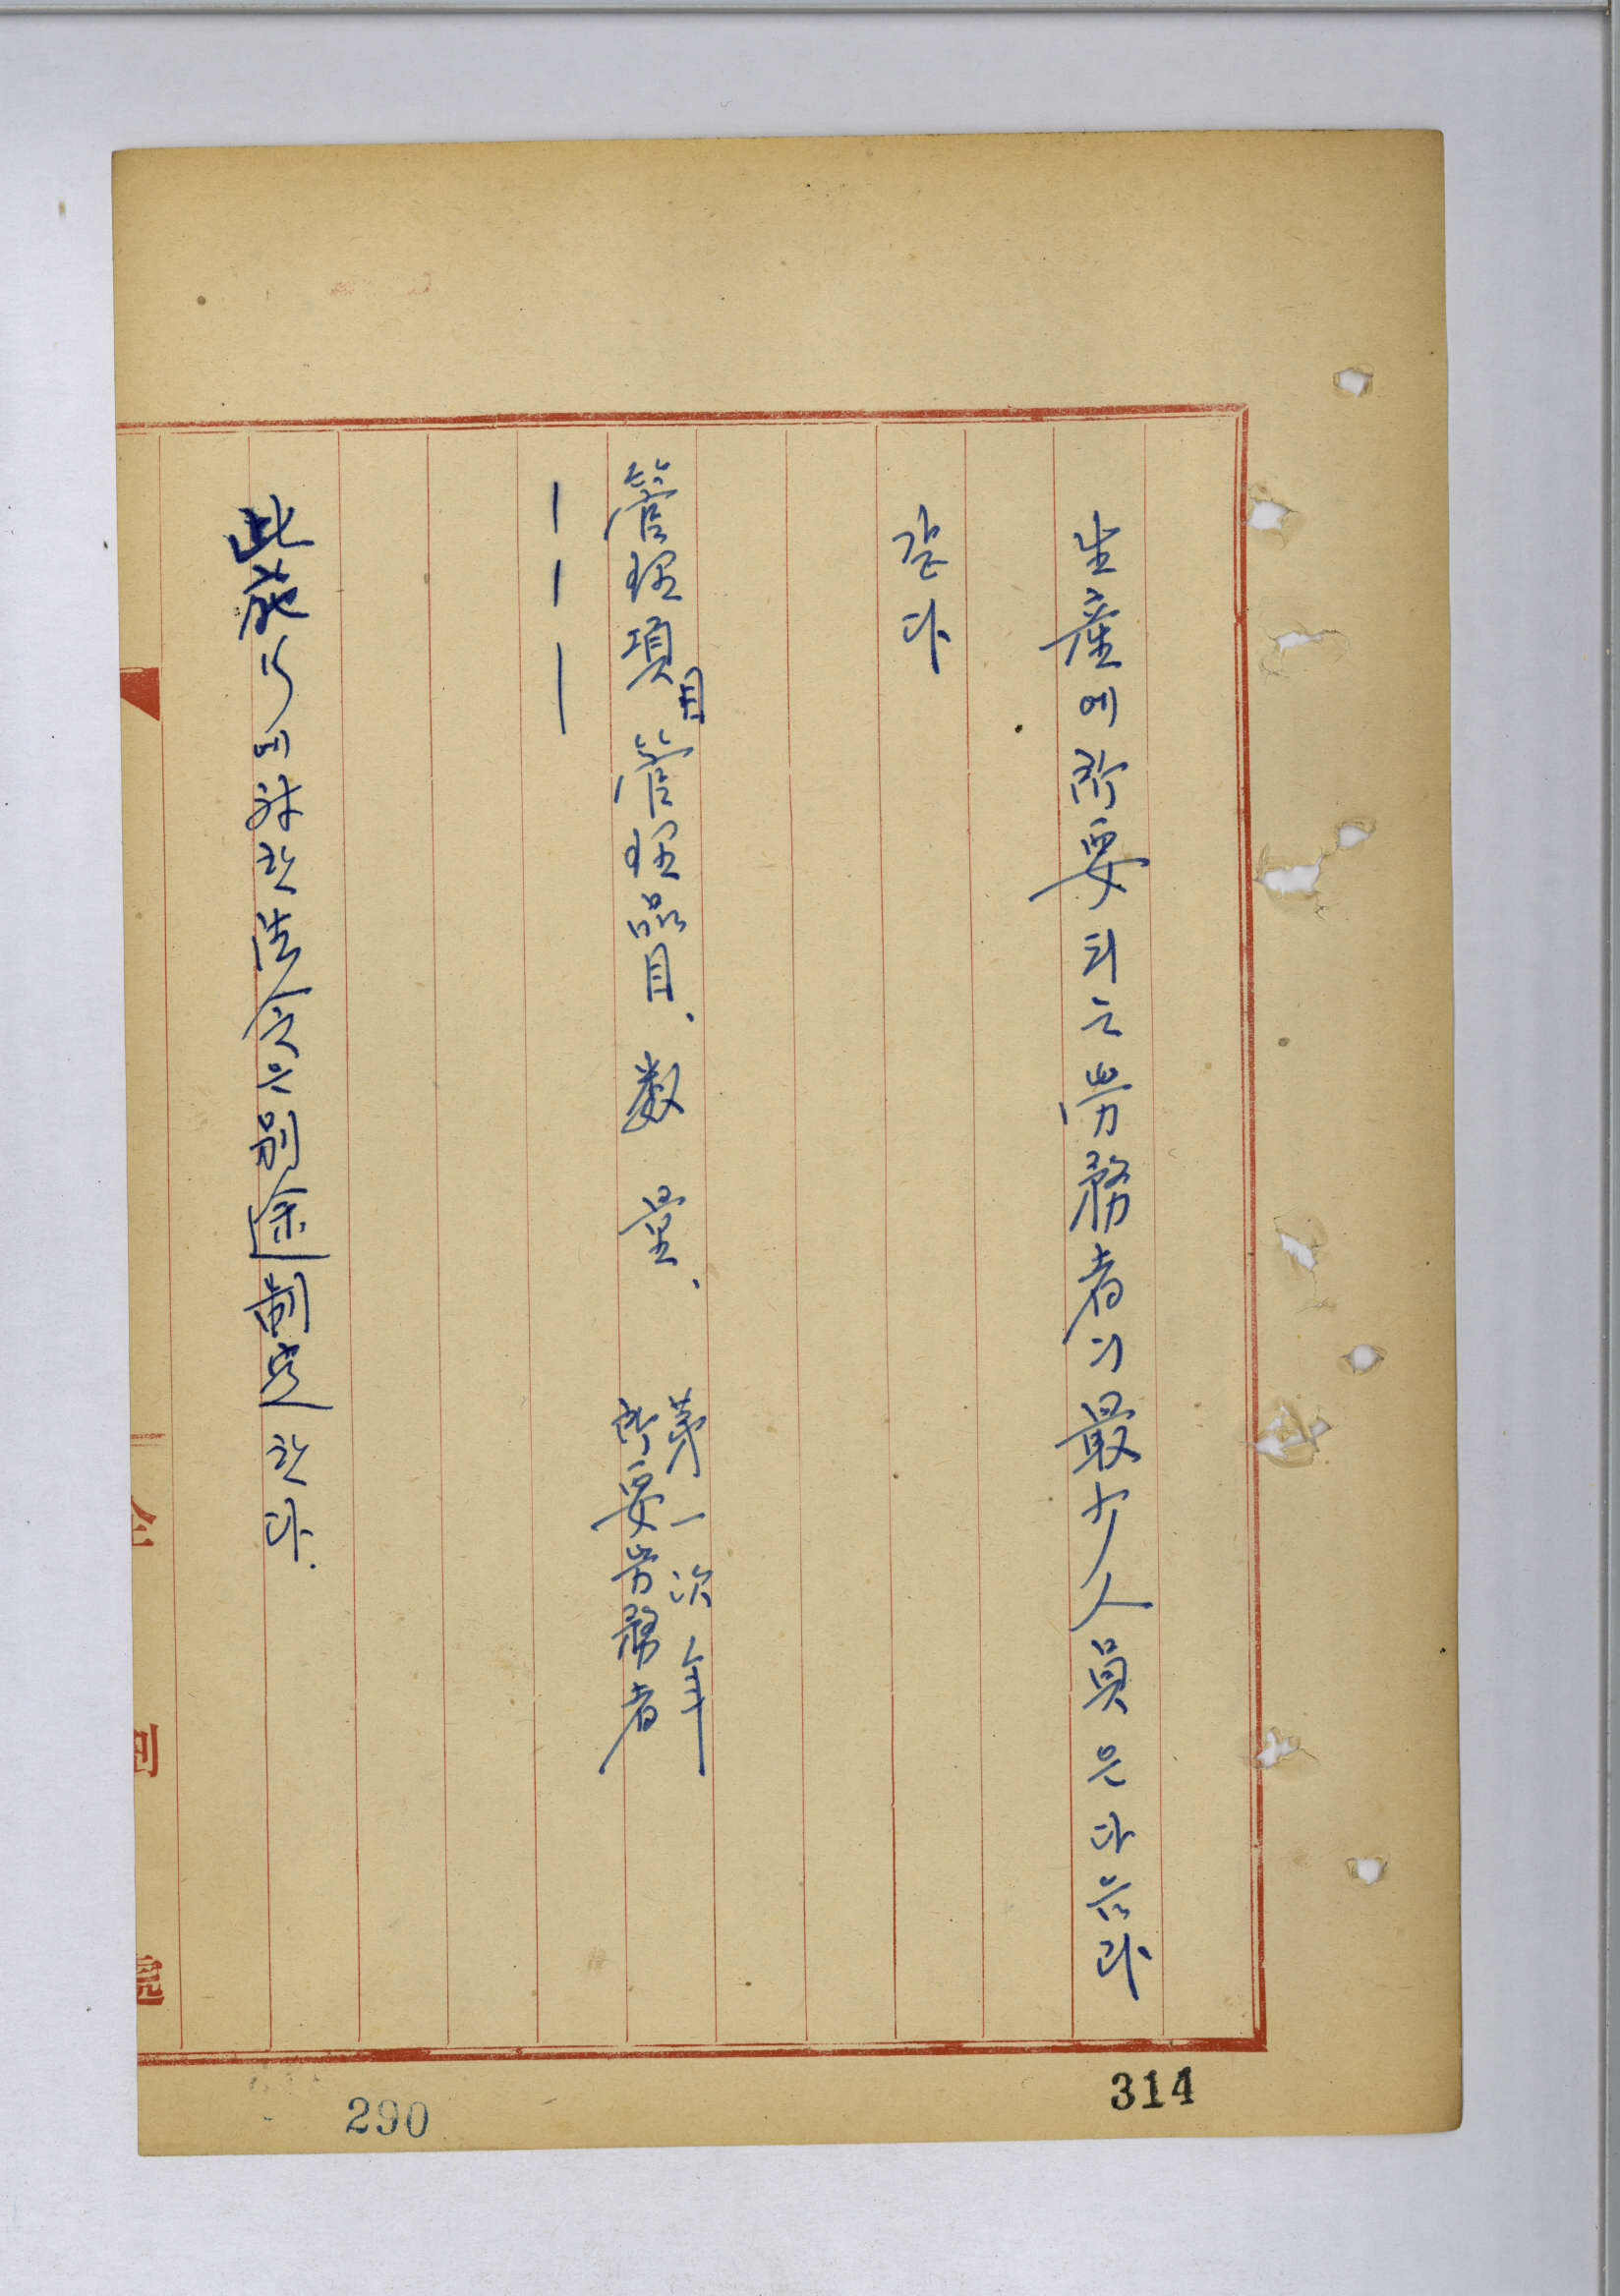 生産에 所要되는 勞務者의 最少人員은 다음과
같다
管理項目 管理品目、 數 量、 第一次年
所要勞務者
一 一 一
此施行에 対한 法令은 別途 制定한다.
314
290